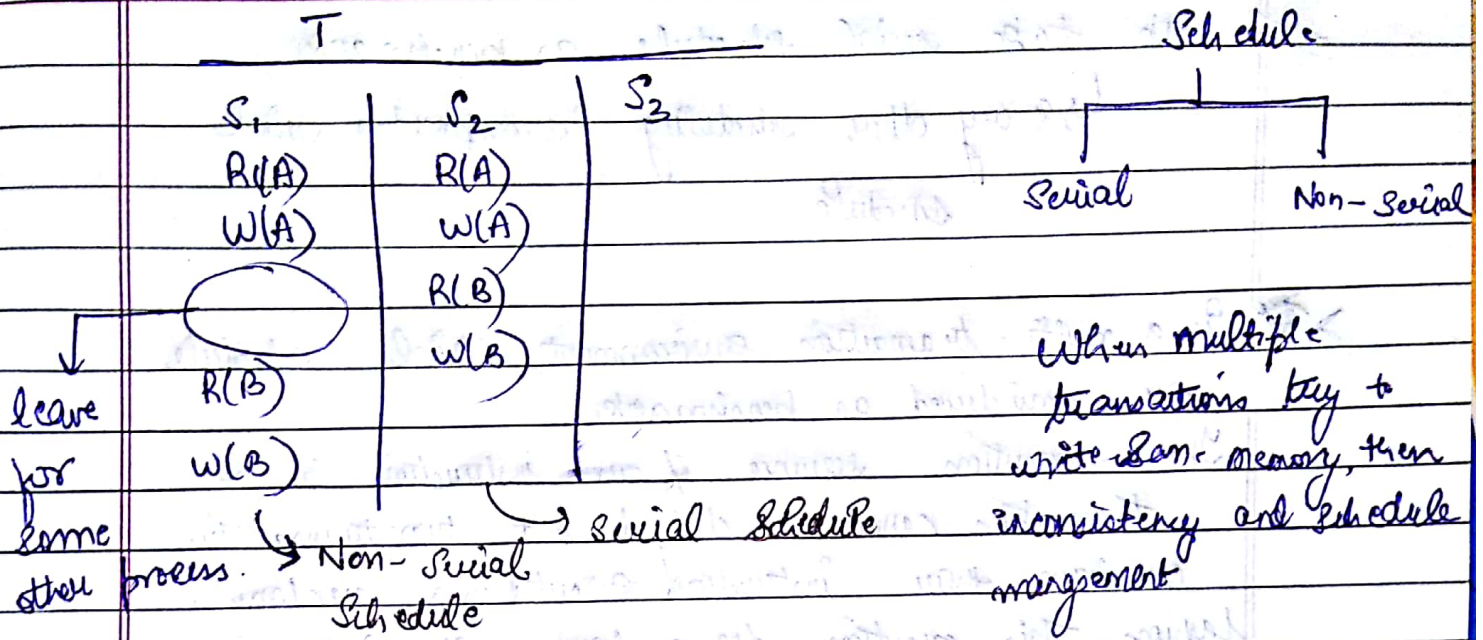 T
S₁ S₂ S₃
R(A) R(A)
W(A) W(A)
R(B)
W(B)
R(B)
W(B)
leave
for
some
other process.
Non-Serial
Schedule
serial Schedule
Schedule
Serial Non-Serial
When multiple
transactions try to
write same memory, then
inconsistency and schedule
mangsement